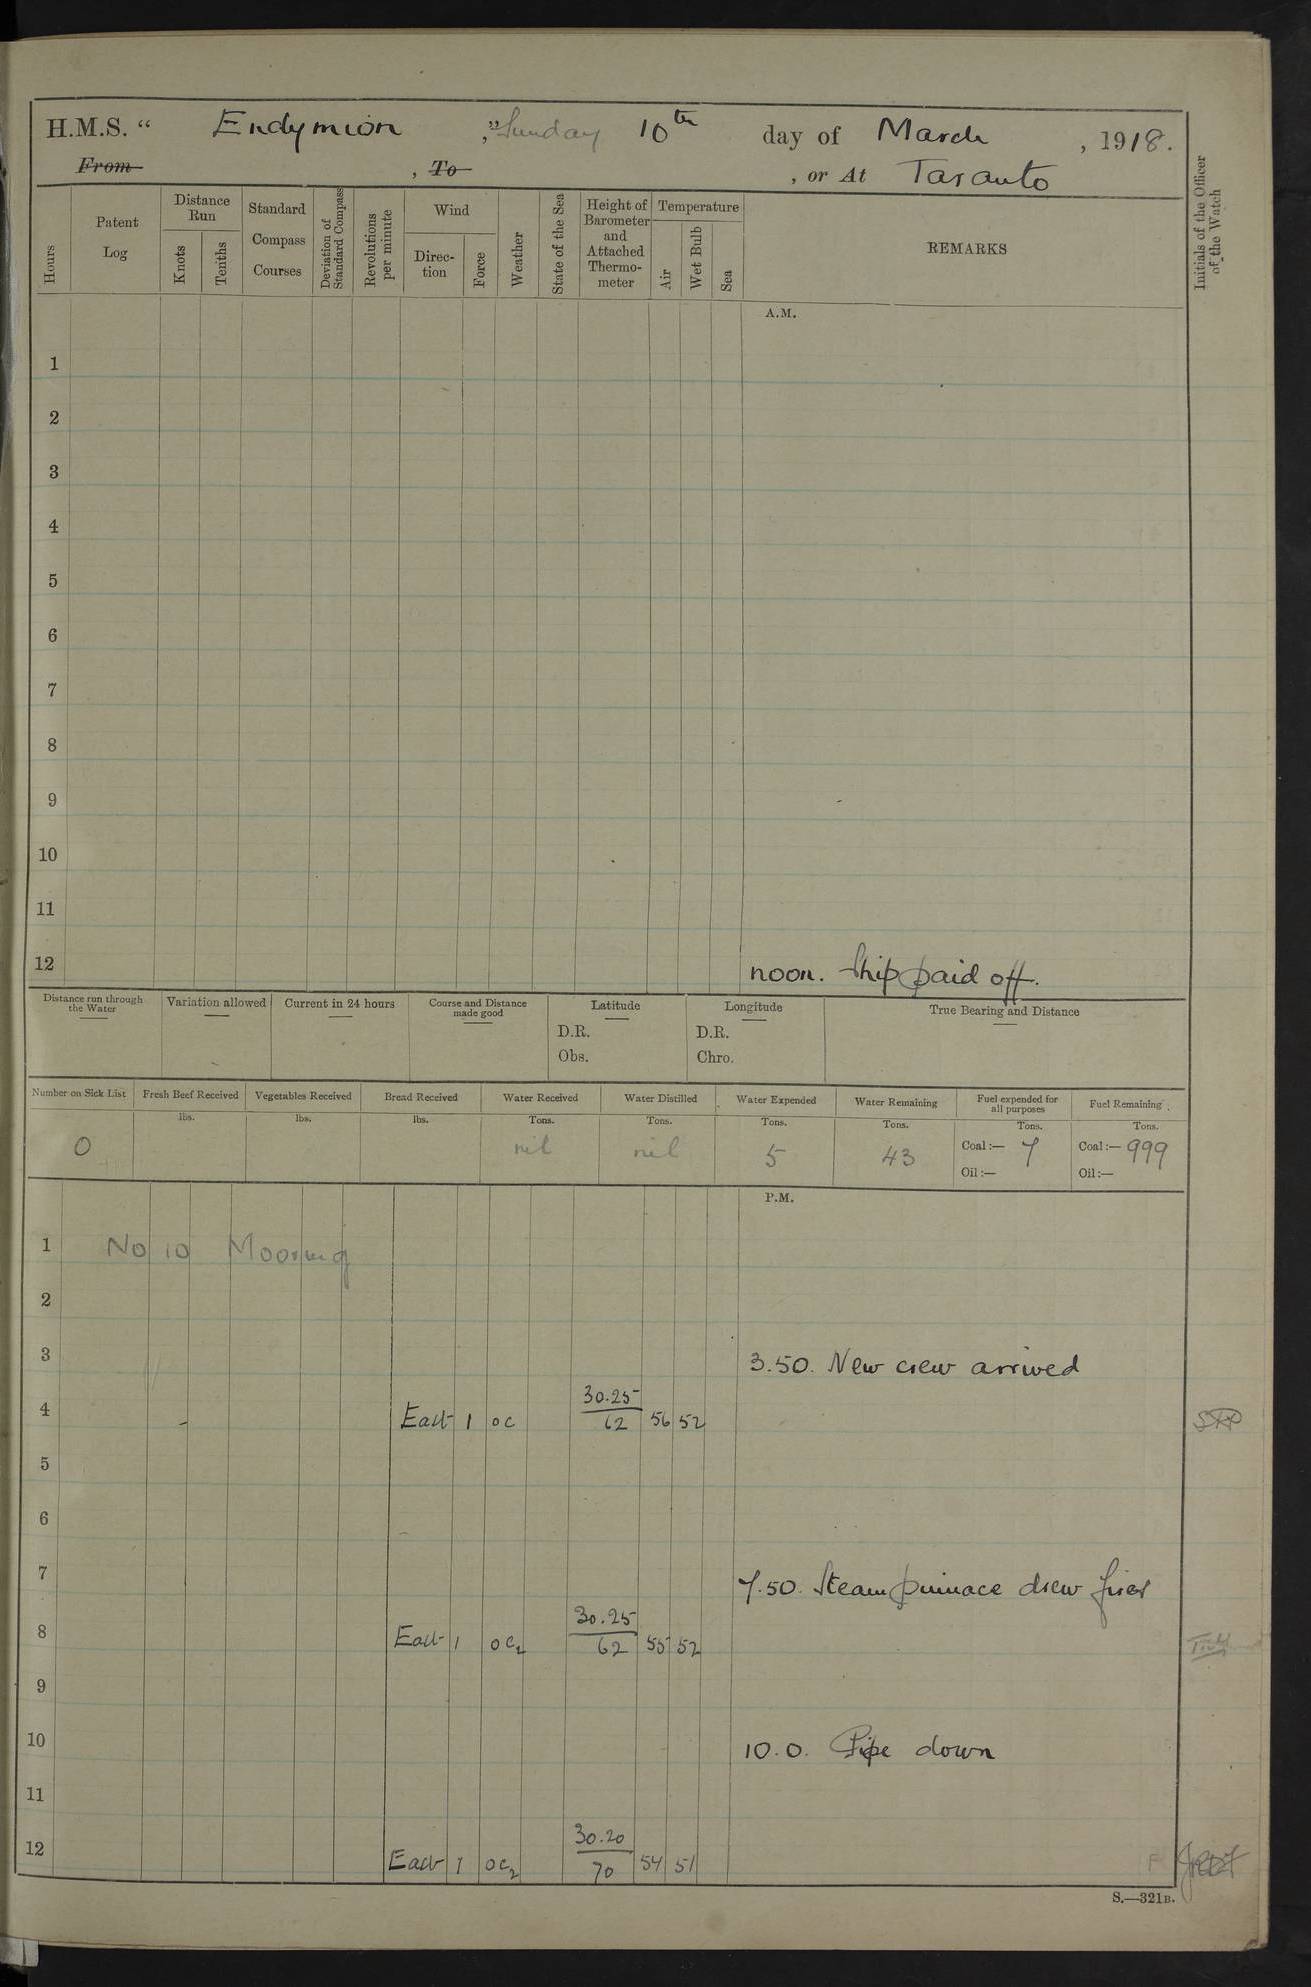 H.M.S. “ Endymion ,” Sunday 10th day of March , 1918.
From , To , or At Taranto
Hours
Patent Log
Distance Run
Knots
Tenths
Standard Compass Courses
Deviation of Standard Compass
Revolutions per minute
Wind
Direc-tion
Force
Weather
State of the Sea
Height of Barometer and Attached Thermo-meter
Temperature
Air
Wet Bulb
Sea
REMARKS
Initials of the Officer of the Watch
A.M.
1
2
3
4
5
6
7
8
9
10
11
12 noon. Ship paid off.
Distance run through the Water
Variation allowed
Current in 24 hours
Course and Distance made good
Latitude
D.R.
Obs.
Longitude
D.R.
Chro.
True Bearing and Distance
Number on Sick List
Fresh Beef Received
Vegetables Received
Bread Received
Water Received
Water Distilled
Water Expended
Water Remaining
Fuel expended for all purposes
Fuel Remaining
lbs. lbs. lbs. Tons. Tons. Tons. Tons. Tons. Tons.
0 nil nil 5 43 Coal:— 7 Coal:— 999
Oil:— Oil:—
P.M.
1 No 10 Mooring
2
3 3.50. New crew arrived
4 East 1 oc 30.25 62 56 52
5
6
7 7.50. Steam pinnace drew fires
8 East 1 oc2 30.25 62 55 52
9
10 10.0. Pipe down
11
12 East 1 oc2 30.20 70 54 51
S.—321B.